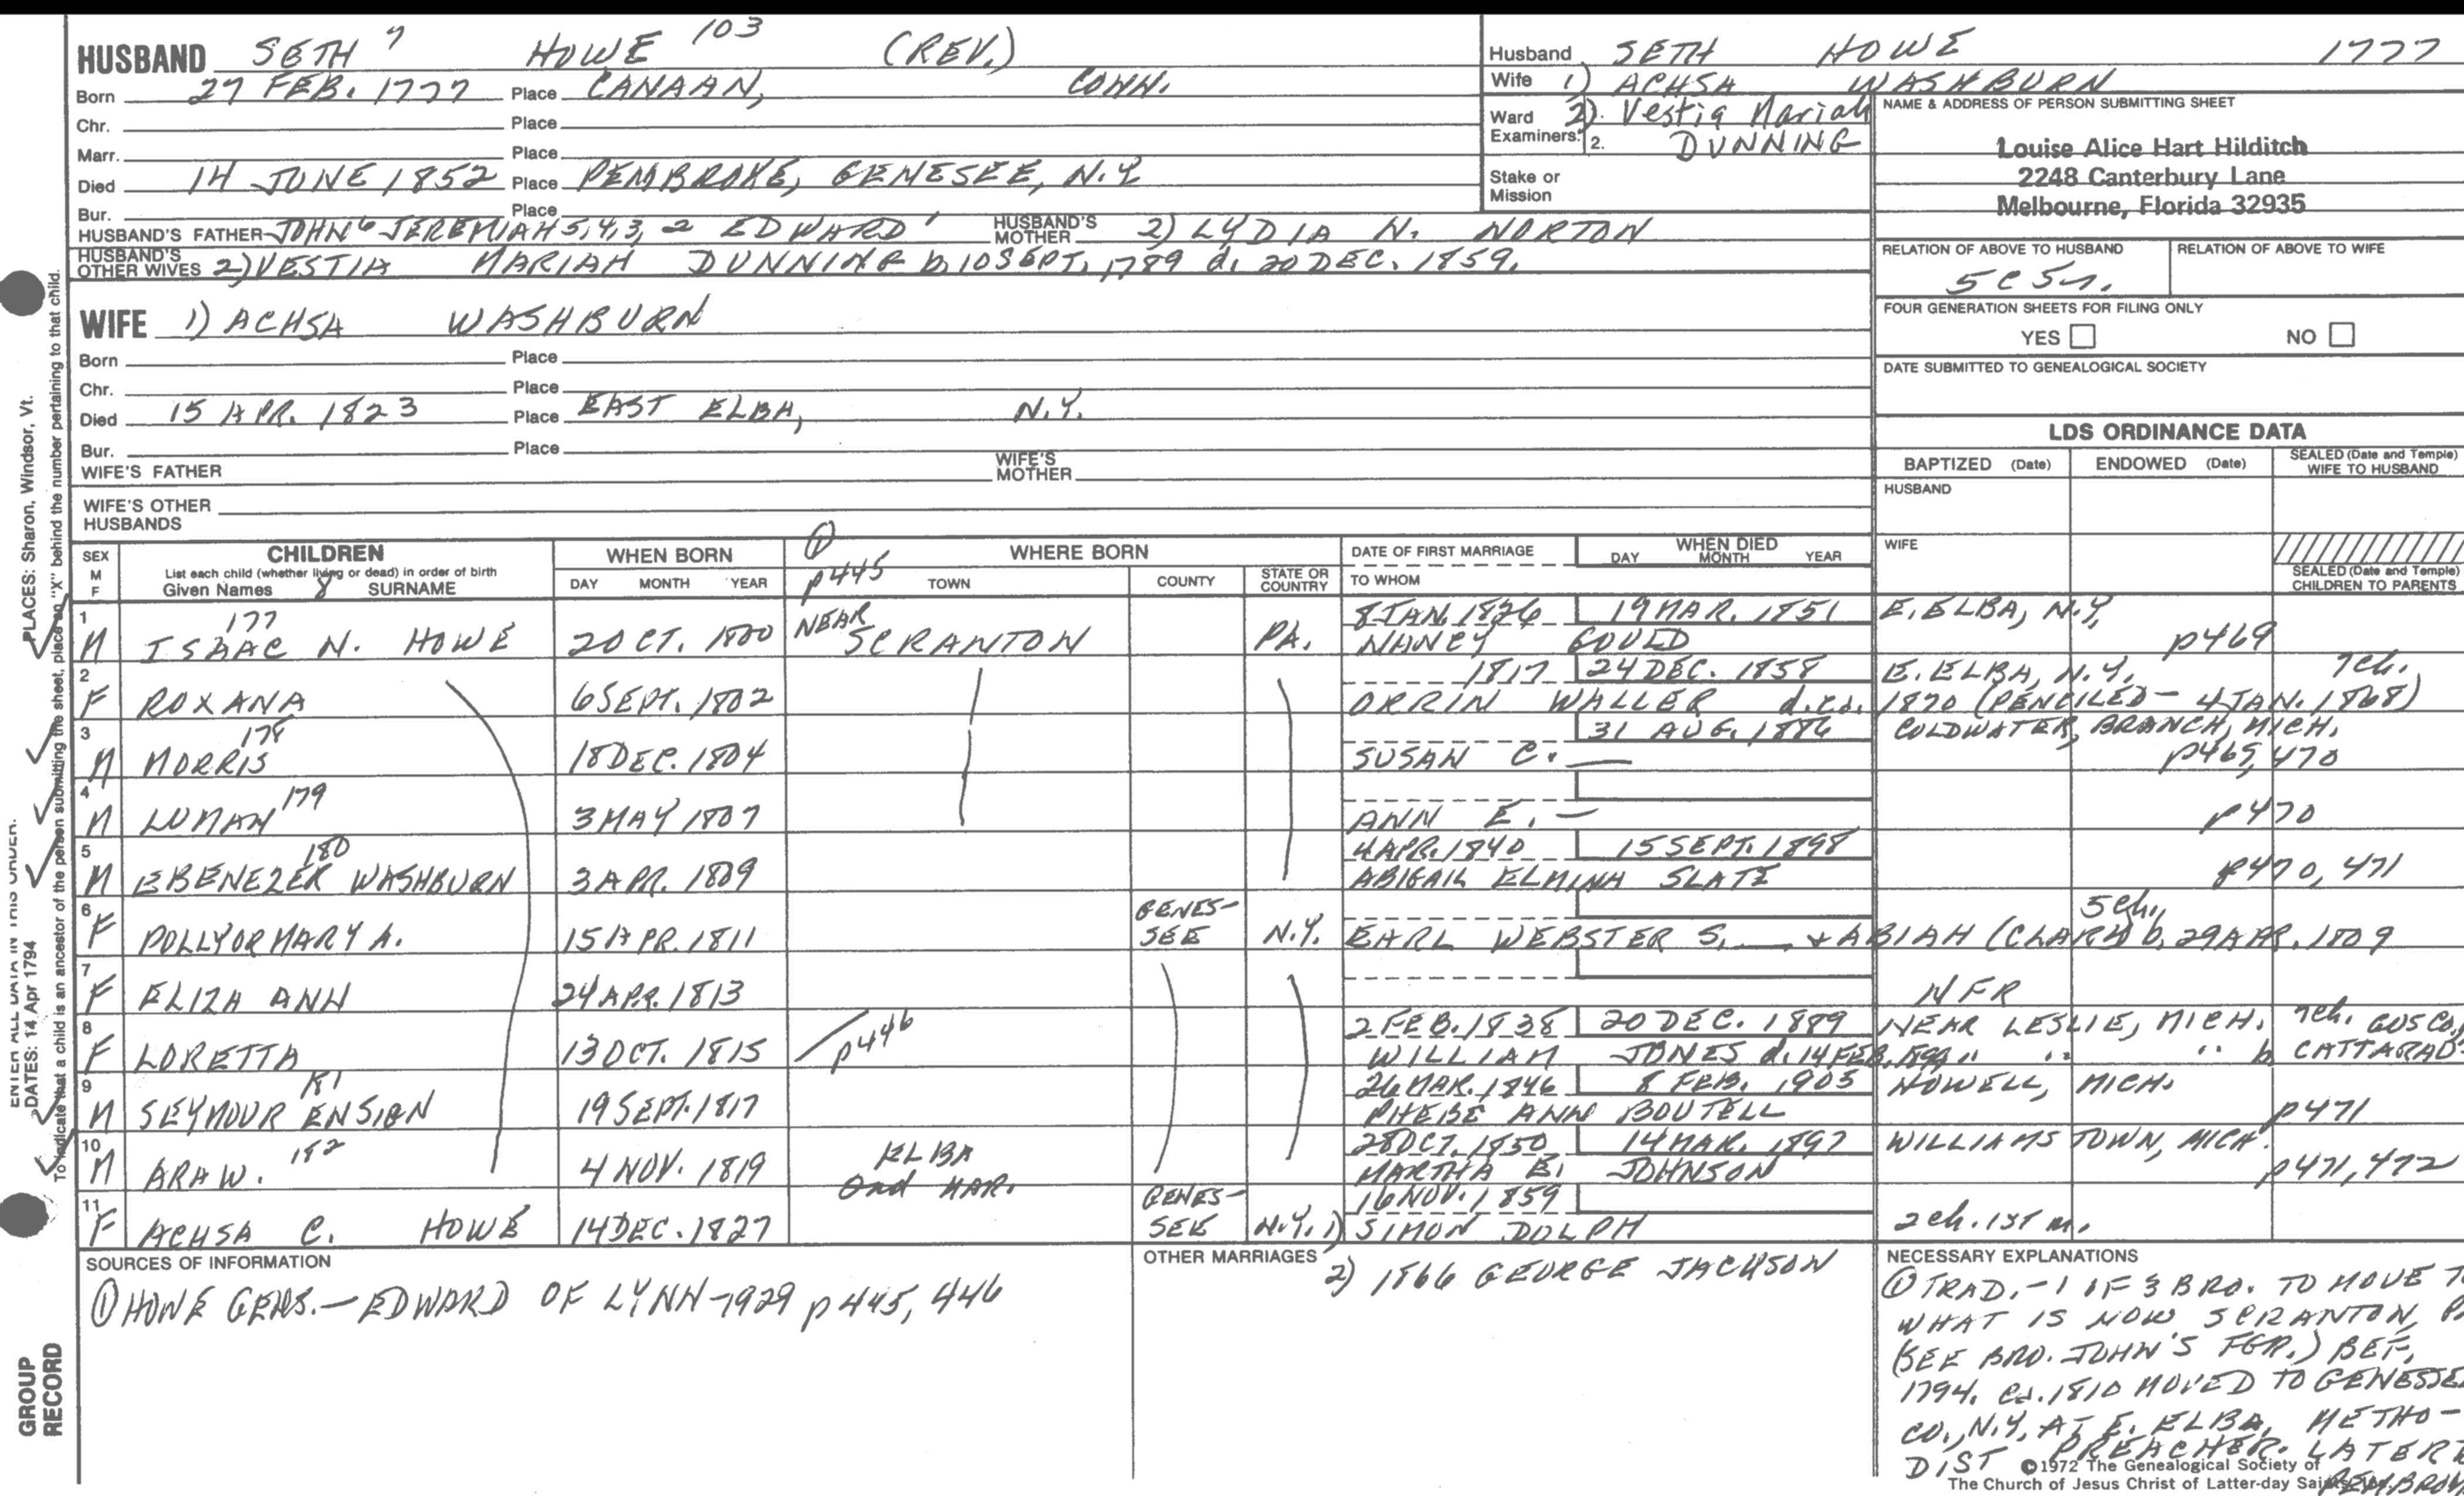 HUSBAND SETH 7 HOWE 103 (REV.)
Born 27 FEB. 1777 Place CANAAN, CONN.
Chr. Place
Marr. Place
Died 14 JUNE 1852 Place PEMBROKE, GENESEE, N.Y.
Bur. Place
HUSBAND'S FATHER JOHN 6 JEREMIAH 5,4,3,2 EDWARD 1 HUSBAND'S MOTHER 2) LYDIA N. NORTON
HUSBAND'S OTHER WIVES 2) VESTIA MARIAH DUNNING b. 10 SEPT. 1789 d. 20 DEC. 1859.
WIFE 1) ACHSA WASHBURN
Born Place
Chr. Place
Died 15 APR. 1823 Place EAST ELBA, N.Y.
Bur. Place
WIFE'S FATHER WIFE'S MOTHER
WIFE'S OTHER HUSBANDS
Husband SETH HOWE 1777
Wife 1) ACHSA WASHBURN
Ward 2). Vestia Mariah
Examiners: 2. DUNNING
Stake or Mission
NAME & ADDRESS OF PERSON SUBMITTING SHEET
Louise Alice Hart Hilditch
2248 Canterbury Lane
Melbourne, Florida 32935
RELATION OF ABOVE TO HUSBAND RELATION OF ABOVE TO WIFE
5C 5r.
FOUR GENERATION SHEETS FOR FILING ONLY
YES NO
DATE SUBMITTED TO GENEALOGICAL SOCIETY
LDS ORDINANCE DATA
BAPTIZED (Date) ENDOWED (Date) SEALED (Date and Temple) WIFE TO HUSBAND
HUSBAND
WIFE
SEALED (Date and Temple) CHILDREN TO PARENTS
SEX M F
CHILDREN
List each child (whether living or dead) in order of birth
Given Names 8 SURNAME
WHEN BORN
DAY MONTH YEAR
① p445
WHERE BORN
TOWN COUNTY STATE OR COUNTRY
DATE OF FIRST MARRIAGE
TO WHOM
WHEN DIED
DAY MONTH YEAR
1 177 NEAR 8 JAN. 1826 19 MAR. 1851 E. ELBA, N.Y.
M ISAAC N. HOWE 20 OCT. 1800 SCRANTON PA. NANCY GOULD p469
2 1817 24 DEC. 1858 E. ELBA, N.Y. 7ch.
F ROXANA 6 SEPT. 1802 ORRIN WALLER d. ca. 1870 (PENCILED - 4 JAN. 1868)
3 178 31 AUG. 1886 COLDWATER, BRANCH, MICH.
M MORRIS 18 DEC. 1804 SUSAN C. — p469, 470
4 179
M LUMAN 3 MAY 1807 ANN E. — p470
5 180 4 APR. 1840 15 SEPT. 1898
M EBENEZER WASHBURN 3 APR. 1809 ABIGAIL ELMINA SLATE p470, 471
6 GENES- 5 ch.
F POLLY OR MARY A. 15 APR. 1811 SEE N.Y. EARL WEBSTER S. — + ABIAH (CLARK) b. 29 APR. 1809
7
F ELIZA ANN 24 APR. 1813 NFR
8 2 FEB. 1838 20 DEC. 1889 NEAR LESLIE, MICH. 7ch. GUS CO.,
F LORETTA 13 OCT. 1815 p446 WILLIAM JONES d. 14 FEB. " " " b. CATTARAU-
9 181 26 MAR. 1846 8 FEB. 1905 HOWELL, MICH.
M SEYMOUR ENSIGN 19 SEPT. 1817 PHEBE ANN BOUTELL p471
10 182 28 OCT. 1850 14 MAR. 1897 WILLIAMSTOWN, MICH.
M ARA W. 4 NOV. 1819 ELBA MARTHA E. JOHNSON p471, 472
2nd MAR.
11 GENES- 16 NOV. 1859
F ACHSA C. HOWE 14 DEC. 1827 SEE N.Y. 1) SIMON DOLPH 2 ch. 1ST m.
SOURCES OF INFORMATION
① HOWE GENS. — EDWARD OF LYNN - 1929 p445, 446
OTHER MARRIAGES
2) 1866 GEORGE JACKSON
NECESSARY EXPLANATIONS
① TRAD. - 1 OF 3 BRO. TO MOVE T
WHAT IS NOW SCRANTON, PA
(SEE BRO. JOHN'S FGR.) BEF.
1794. ca. 1810 MOVED TO GENESSEE
CO., N.Y. AT E. ELBA, METHO-
DIST PREACHER. LATER
PEMBROK
©1972 The Genealogical Society of
The Church of Jesus Christ of Latter-day Saints, Inc.
PLACES: Sharon, Windsor, Vt.
To indicate that a child is an ancestor of the person submitting the sheet, place an "X" behind the number pertaining to that child.
ENTER ALL DATA IN THIS ORDER:
DATES: 14 Apr 1794
GROUP
RECORD